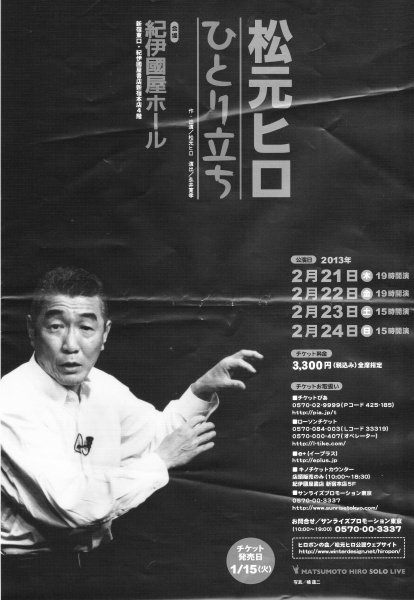 松元ヒロ
ひとり立ち
作・出演／松元ヒロ 演出／永井寛孝
会場
紀伊國屋ホール
新宿東口・紀伊國屋書店新宿本店4階
公演日 2013年
2月21日㊍ 19時開演
2月22日㊎ 19時開演
2月23日㊏ 15時開演
2月24日㊐ 15時開演
チケット料金
3,300円(税込み)全席指定
チケットお取扱い
■チケットぴあ
0570-02-9999(Pコード 425-185)
http://pia.jp/t
■ローソンチケット
0570-084-003(Lコード 33319)
0570-000-407(オペレーター)
http://l-tike.com/
■e+(イープラス)
http://eplus.jp
■キノチケットカウンター
店頭販売のみ(10:00〜18:30)
紀伊國屋書店 新宿本店5F
■サンライズプロモーション東京
0570-00-3337
http://www.sunrisetokyo.com/
お問合せ／サンライズプロモーション東京
(10:00〜19:00) 0570-00-3337
ヒロポンの会／松元ヒロ公認ウェブサイト
http://www.winterdesign.net/hiropon/
MATSUMOTO HIRO SOLO LIVE
チケット
発売日
1/15(火)